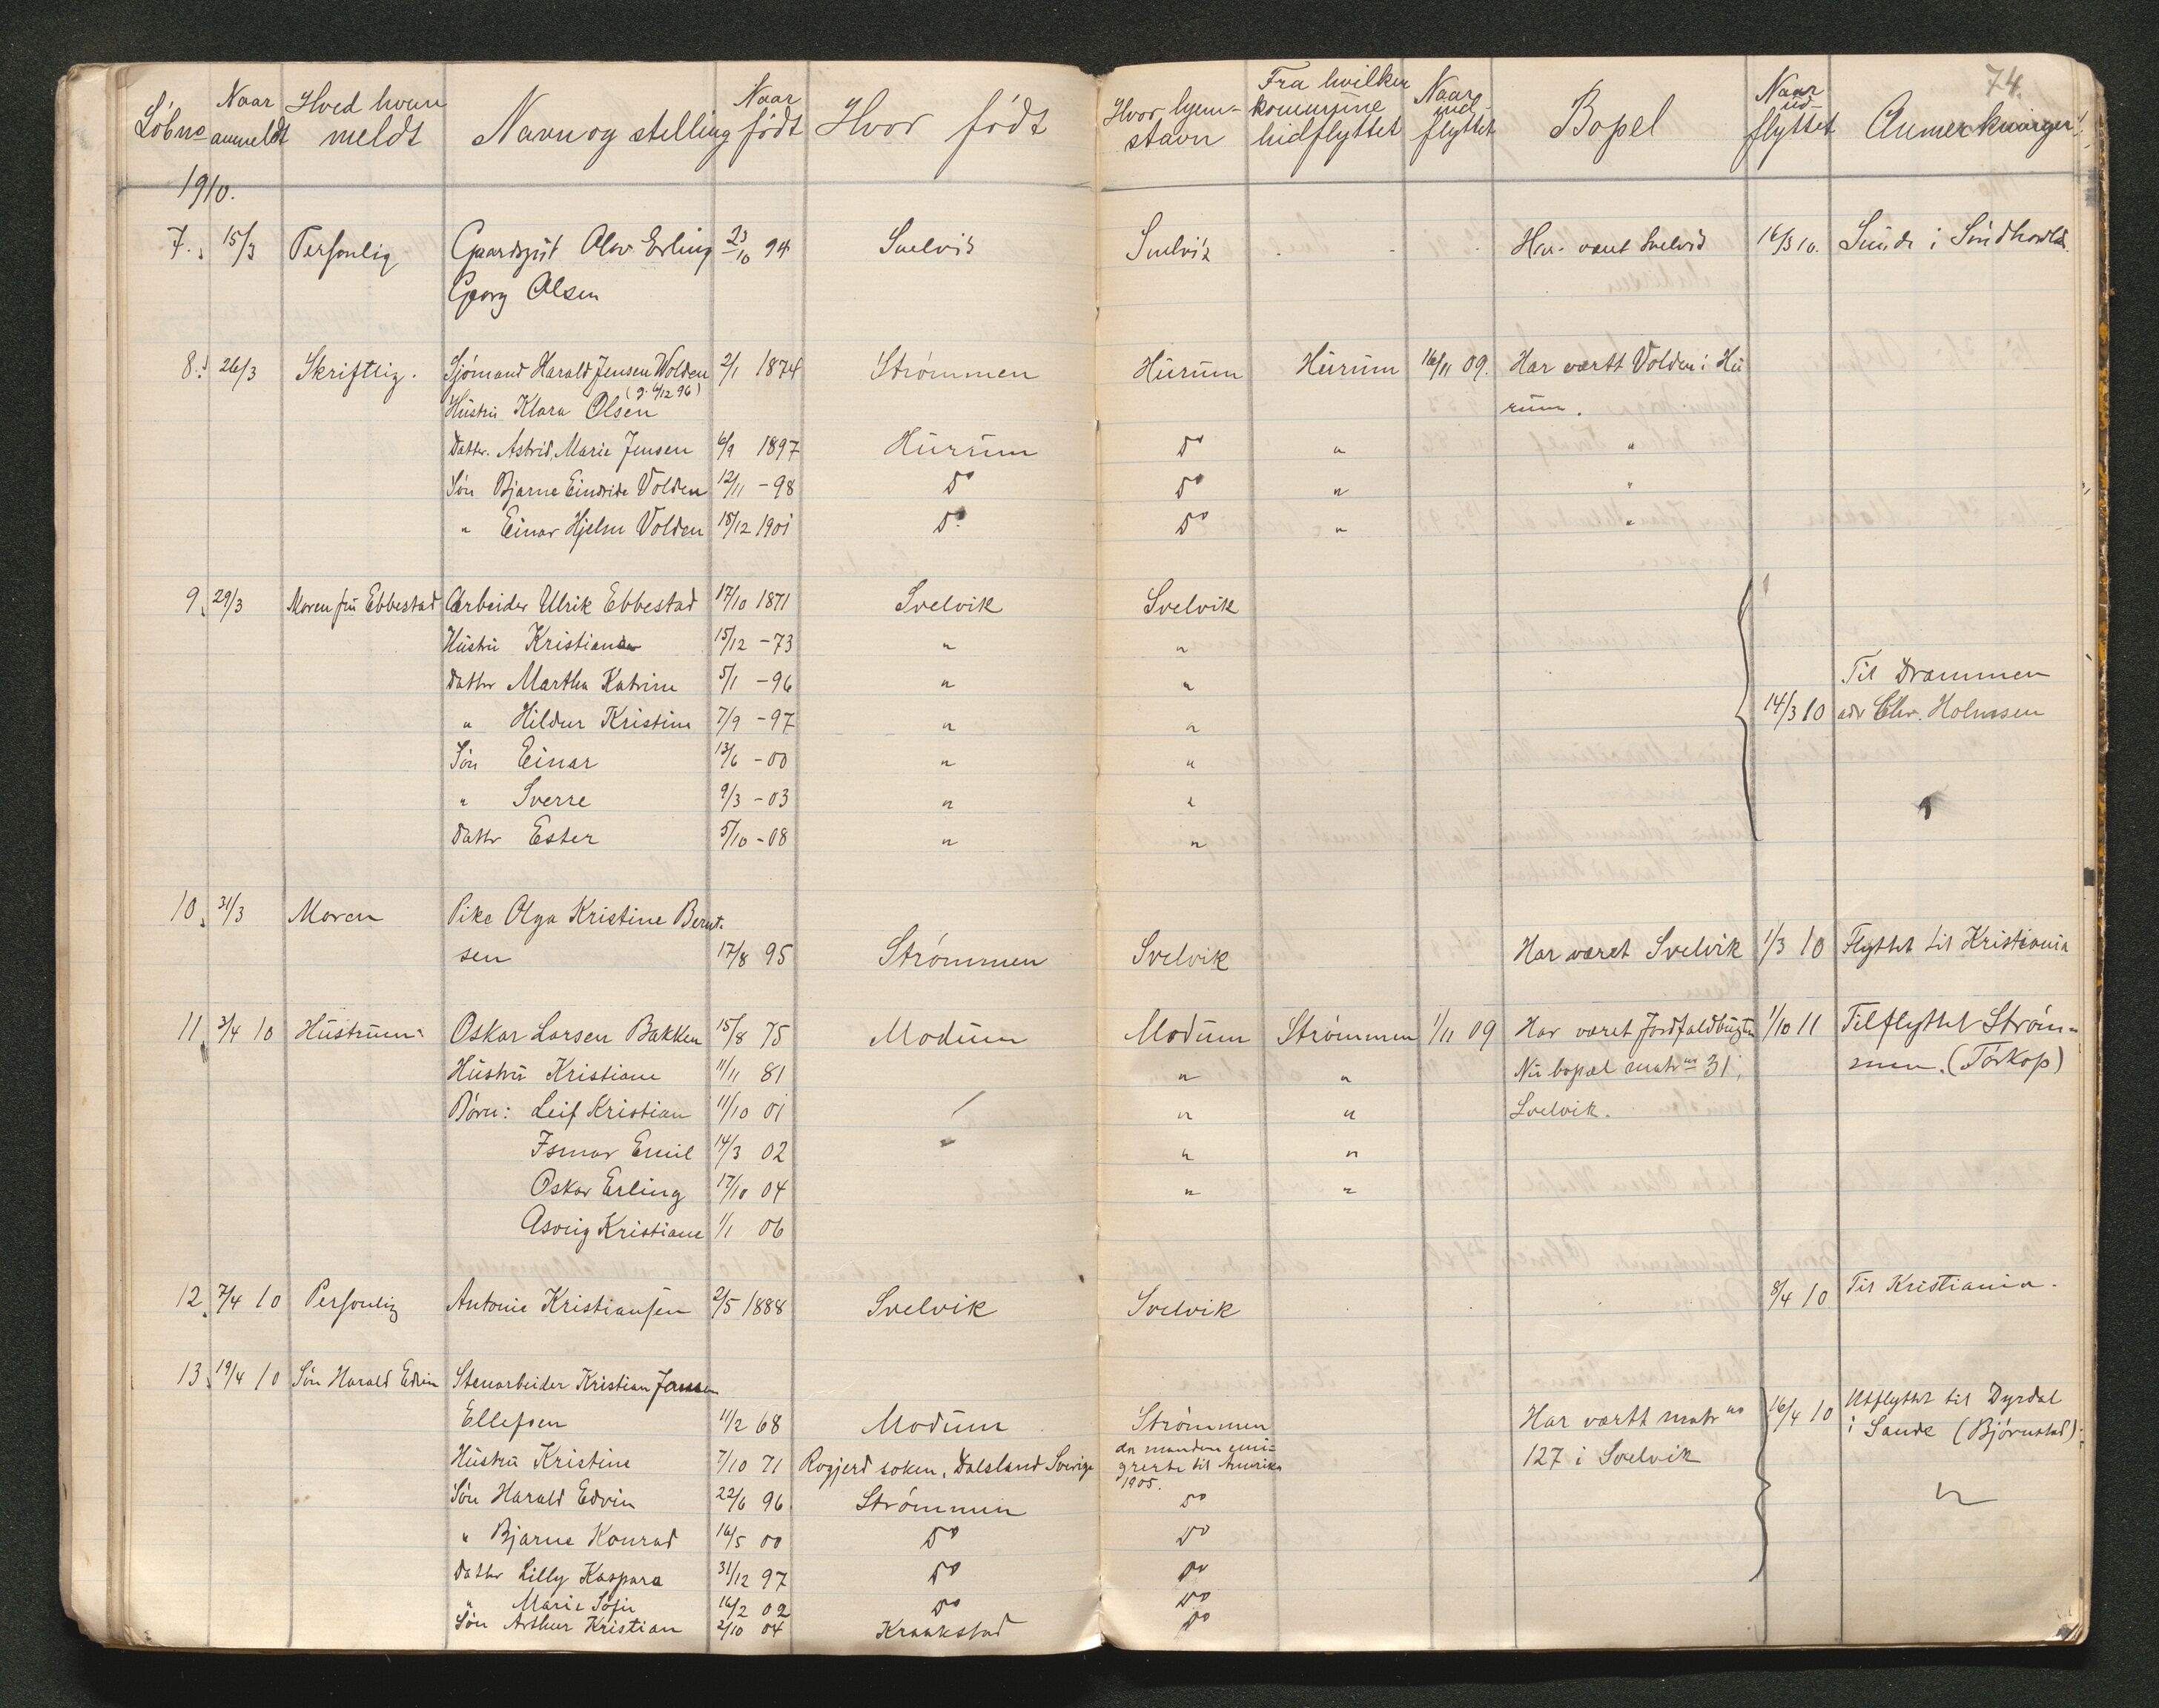 74.
Löbno Naar anmeldt Hved hvem meldt Navn og stilling Naar födt Hvor födt Hvor hjemstavn Fra hvilken kommune hidflyttet Naar indflyttet Bopel Naar udflyttet Anmerkninger
1910.
7. 15/3 Personlig Gaardsgut Olav Erling 23/10 94 Svelvik Svelvik Har været Svelvik 16/3 10. Sunde i Söndhordld.
Georg Olsen
8. 26/3 Skriftlig. Sjömand Harald Jensen Wolden 2/1 1874 Strömmen Hurum Hurum 16/11 09. Har værtt Volden i Hu
(g. 6/12 96)
Hustru Klara Olsen rum.
Datter. Astrid, Marie Jensen 6/9 1897 Hurum Do " "
Sön Bjarne Eindride Volden 12/11 - 98 Do Do " "
" Einar Hjelm Volden 18/12 1901 Do Do " "
9. 29/3 Moren fru Ebbestad Arbeider Ulrik Ebbestad 17/10 1871 Svelvik Svelvik
Hustru Kristiane 15/12 - 73 " "
Datter Martha Katrine 5/1 - 96 " " Til Drammen
" Hildur Kristine 7/9 - 97 " " 14/3 10 adr Chr. Holmsen
Sön Einar 13/6 - 00 " "
" Sverre 9/3 - 03 " "
Datter Ester 5/10 - 08 " "
10. 31/3 Moren Pike Olga Kristine Bernt-
sen 17/8 95 Strömmen Svelvik Har været Svelvik 1/3 10 Flyttet til Kristiania
11. 3/4 10 Hustruen Oskar Larsen Bakken 15/8 75 Modum Modum Strömmen 1/11 09 Har været Jordfaldbugten 1/10 11 Tilflyttet Ström-
Hustru Kristiane 11/11 81 " " Nu bopæl matr no 31, men. (Törkop)
Börn: Leif Kristian 11/10 01 " " Svelvik.
Ismar Emil 14/3 02 " "
Oskar Erling 17/10 04 " "
Asveig Kristiane 1/1 06
12. 7/4 10 Personlig Antonie Kristiansen 2/5 1888 Svelvik Svelvik 8/4 10 Til Kristiania.
13. 19/4 10 Sön Harald Edvin Stenarbeider Kristian Jensen
Ellefsen 11/2 68 Modum Strömmen Har værtt matr no 16/4 10 Utflyttet til Dyrdal
i Sande (Björnstad).
Hustru Kristine 7/10 71 Rogjerd soken, Dalsland Sverige da manden emi- 127 i Svelvik
grerte til Amerika
1905.
Sön Harald Edvin 22/6 96 Strömmen Do "
" Bjarne Konrad 16/5 00 Do Do
Datter Lilly Kaspara 31/12 97 Do Do
" Marie Sofie 16/2 02 Do Do
Sön Arthur Kristian 2/10 04 Kraakstad Do